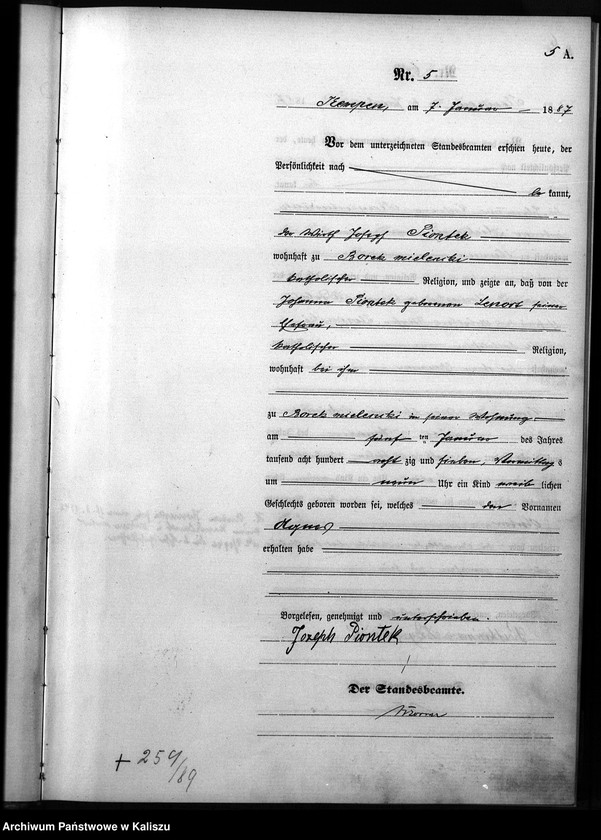 5 A.
Nr. 5
Kempen, am 7. Januar 1887
Vor dem unterzeichneten Standesbeamten erschien heute, der
Persönlichkeit nach
bekannt,
der Wirth Joseph Piontek
wohnhaft zu Borek mielenski
katholischer Religion, und zeigte an, daß von der
Johanna Piontek geborenen Lenort seiner
Ehefrau,
katholischer Religion,
wohnhaft bei ihm
zu Borek mielenski in seiner Wohnung
am fünften Januar des Jahres
tausend acht hundert achtzig und sieben, Vormittags
um neun Uhr ein Kind weiblichen
Geschlechts geboren worden sei, welches den Vornamen
Agnes
erhalten habe
Vorgelesen, genehmigt und unterschrieben.
Joseph Piontek
Der Standesbeamte.
+ 259/89
Archiwum Państwowe w Kaliszu